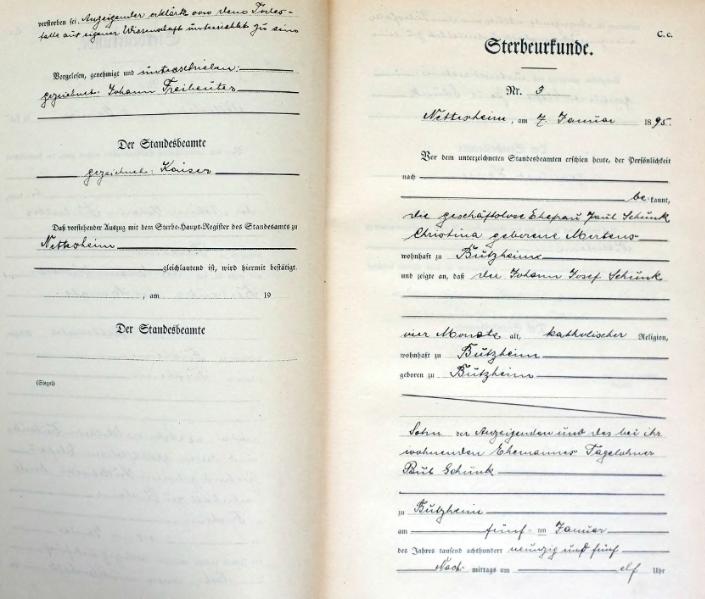 verstorben sei. Anzeigender erklärt von dem Todes-
falle aus eigener Wissenschaft unterrichtet zu sein
Vorgelesen, genehmigt und unterschrieben:
gezeichnet: Johann
Der Standesbeamte
gezeichnet: Kaiser
Daß vorstehender Auszug mit dem Sterbe-Haupt-Register des Standesamts zu
Nettesheim
gleichlautend ist, wird hiermit bestätigt.
, am 19
Der Standesbeamte
(Siegel)
C. c.
Sterbeurkunde.
Nr. 3
Nettesheim, am 7. Januar 1895.
Vor dem unterzeichneten Standesbeamten erschien heute, der Persönlichkeit
nach
be kannt,
die geschäftslose Ehefrau Paul Schunk
Christina geborene Mertens
wohnhaft zu Butzheim
und zeigte an, daß die Johann Josef Schunk
vier Monate alt, katholischer Religion,
wohnhaft zu Butzheim
geboren zu Butzheim
Sohn der Anzeigenden und des bei ihr
wohnenden Ehemannes Tagelöhner
Paul Schunk
zu Butzheim
am fünf ten Januar
des Jahres tausend achthundert neunzig und fünf
Nach mittags um elf Uhr